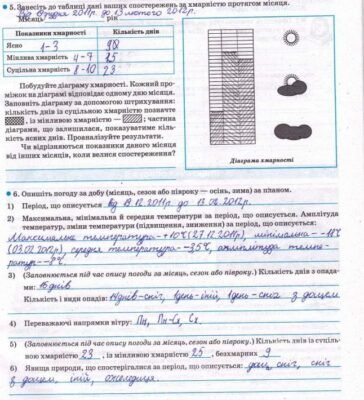 5. Занесіть до таблиці дані ваших спостережень за хмарністю протягом місяця.
від грудня 2011р. до 13 лютого 2012р.
Місяць рік
Показники хмарності Кількість днів
Ясно 1-3
Мінлива хмарність 4-7 25
Суцільна хмарність 8-10 23
Побудуйте діаграму хмарності. Кожний про-
міжок на діаграмі відповідає одному дню місяця.
Заповніть діаграму за допомогою штрихування:
кількість днів із суцільною хмарністю позначте
, із мінливою хмарністю — ; частина
діаграми, що залишилася, показуватиме кіль-
кість ясних днів. Проаналізуйте результати.
Чи відрізняються показники даного місяця
від інших місяців, коли велися спостереження?
Діаграма хмарності
6. Опишіть погоду за добу (місяць, сезон або півроку — осінь, зима) за планом.
1) Період, що описується від 13.12.2011р. до 13.02.2012р.
2) Максимальна, мінімальна й середня температури за період, що описується. Амплітуда
температур, зміни температури (підвищення, зниження) за період, що описується:
Максимальна температура +10°C (27.12.2011р), мінімальна
(03.02.2012р), середня температура -3,5°C, амплітуда темпе-
ратур
3) (Заповнюється під час опису погоди за місяць, сезон або півроку.) Кількість днів з опада-
ми 16 днів
Кількість і види опадів: 14 днів-сніг, 1 день-іній, 1 день- з дощем
4) Переважаючі напрямки вітру: Пн, Пн-Сх, Сх.
5) (Заповнюється під час опису погоди за місяць, сезон або півроку.) Кількість днів із суціль-
ною хмарністю 23, із мінливою хмарністю 25, безхмарних 9
6) Явища природи, що спостерігалися за період, що описується: дощ, сніг, сніг
з дощем, іній, ожеледиця.